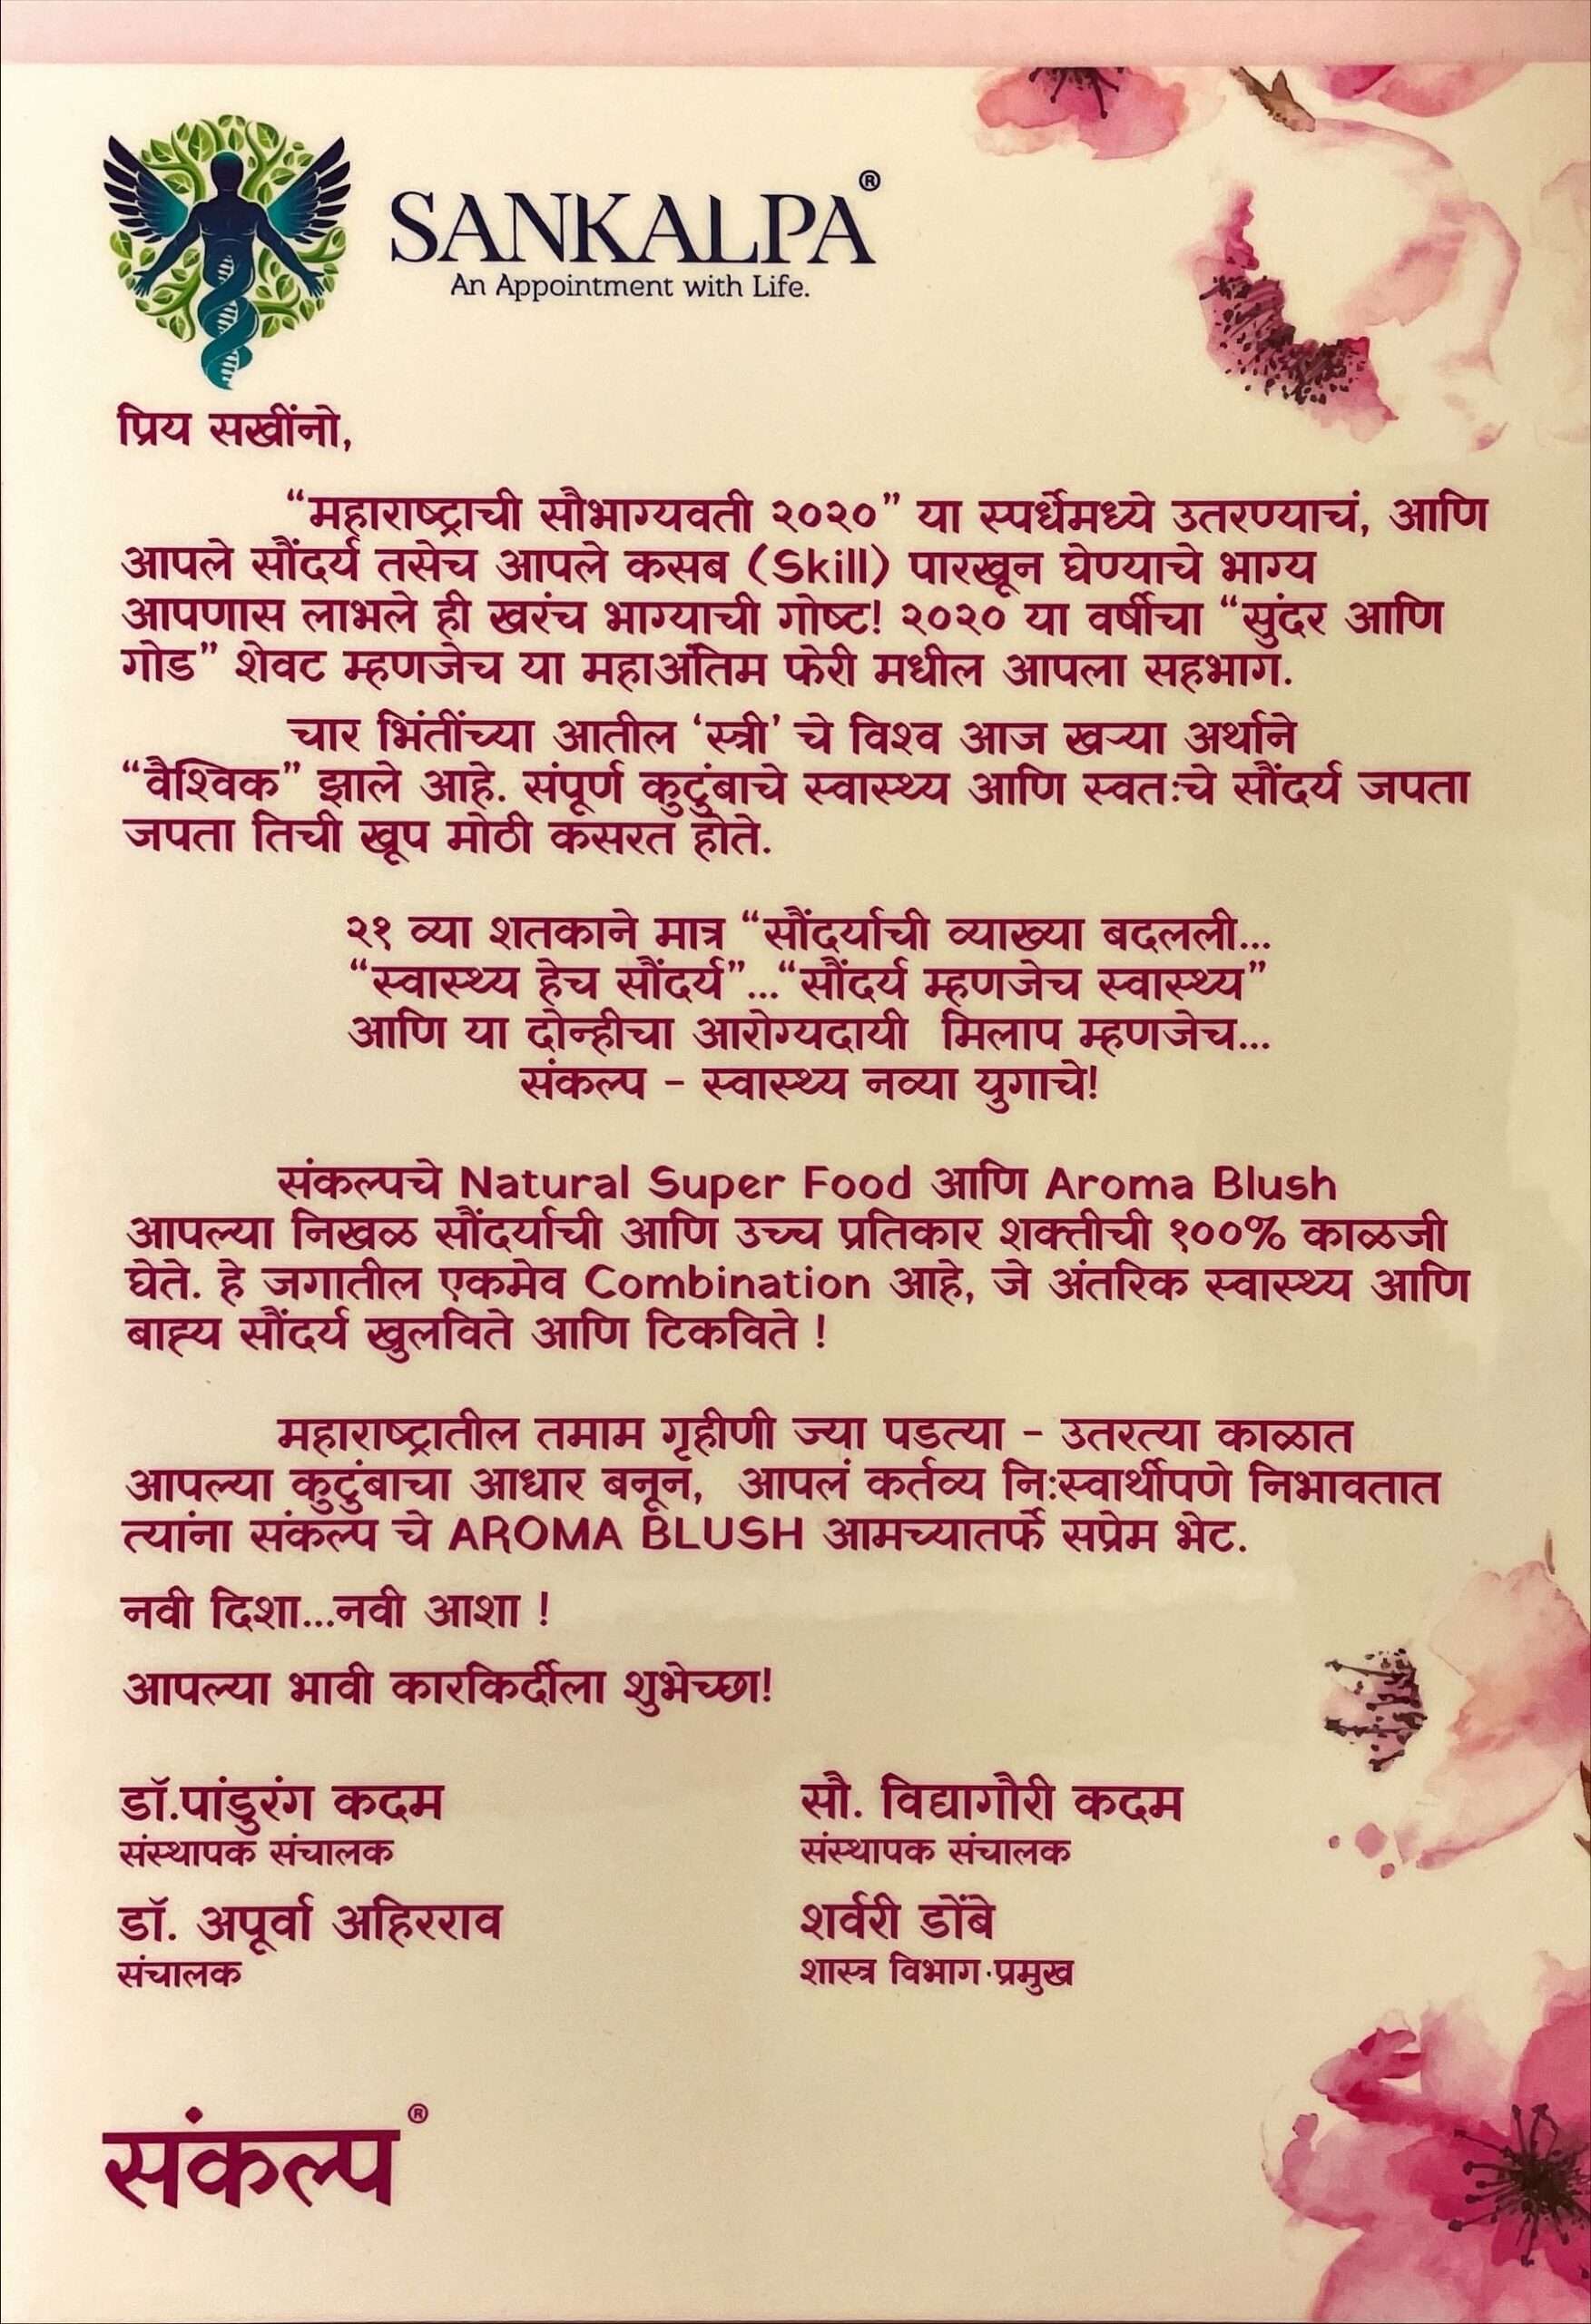 SANKALPA®
An Appointment with Life.
प्रिय सखींनो,
“महाराष्ट्राची सौभाग्यवती २०२०” या स्पर्धेमध्ये उतरण्याचं, आणि
आपले सौंदर्य तसेच आपले कसब (Skill) पारखून घेण्याचे भाग्य
आपणास लाभले ही खरंच भाग्याची गोष्ट! २०२० या वर्षीचा “सुंदर आणि
गोड” शेवट म्हणजेच या महाअंतिम फेरी मधील आपला सहभाग.
चार भिंतींच्या आतील ‘स्त्री’ चे विश्व आज खऱ्या अर्थाने
“वैश्विक” झाले आहे. संपूर्ण कुटुंबाचे स्वास्थ्य आणि स्वतःचे सौंदर्य जपता
जपता तिची खूप मोठी कसरत होते.
२१ व्या शतकाने मात्र “सौंदर्याची व्याख्या बदलली...
“स्वास्थ्य हेच सौंदर्य”...“सौंदर्य म्हणजेच स्वास्थ्य”
आणि या दोन्हीचा आरोग्यदायी मिलाप म्हणजेच...
संकल्प - स्वास्थ्य नव्या युगाचे!
संकल्पचे Natural Super Food आणि Aroma Blush
आपल्या निखळ सौंदर्याची आणि उच्च प्रतिकार शक्तीची १००% काळजी
घेते. हे जगातील एकमेव Combination आहे, जे अंतरिक स्वास्थ्य आणि
बाह्य सौंदर्य खुलविते आणि टिकविते !
महाराष्ट्रातील तमाम गृहीणी ज्या पडत्या - उतरत्या काळात
आपल्या कुटुंबाचा आधार बनून, आपलं कर्तव्य नि:स्वार्थीपणे निभावतात
त्यांना संकल्प चे AROMA BLUSH आमच्यातर्फे सप्रेम भेट.
नवी दिशा...नवी आशा !
आपल्या भावी कारकिर्दीला शुभेच्छा!
डॉ.पांडुरंग कदम
संस्थापक संचालक
सौ. विद्यागौरी कदम
संस्थापक संचालक
डॉ. अपूर्वा अहिरराव
संचालक
शर्वरी डोंबे
शास्त्र विभाग प्रमुख
संकल्प®